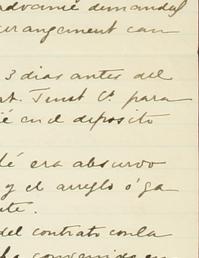 advance demanded
arrangement can
3 dias antes del
at. Tenst Co. para
é en el deposito
dé era absurdo
y el arreglo ó ga
te.
del contrato con la
convenido en